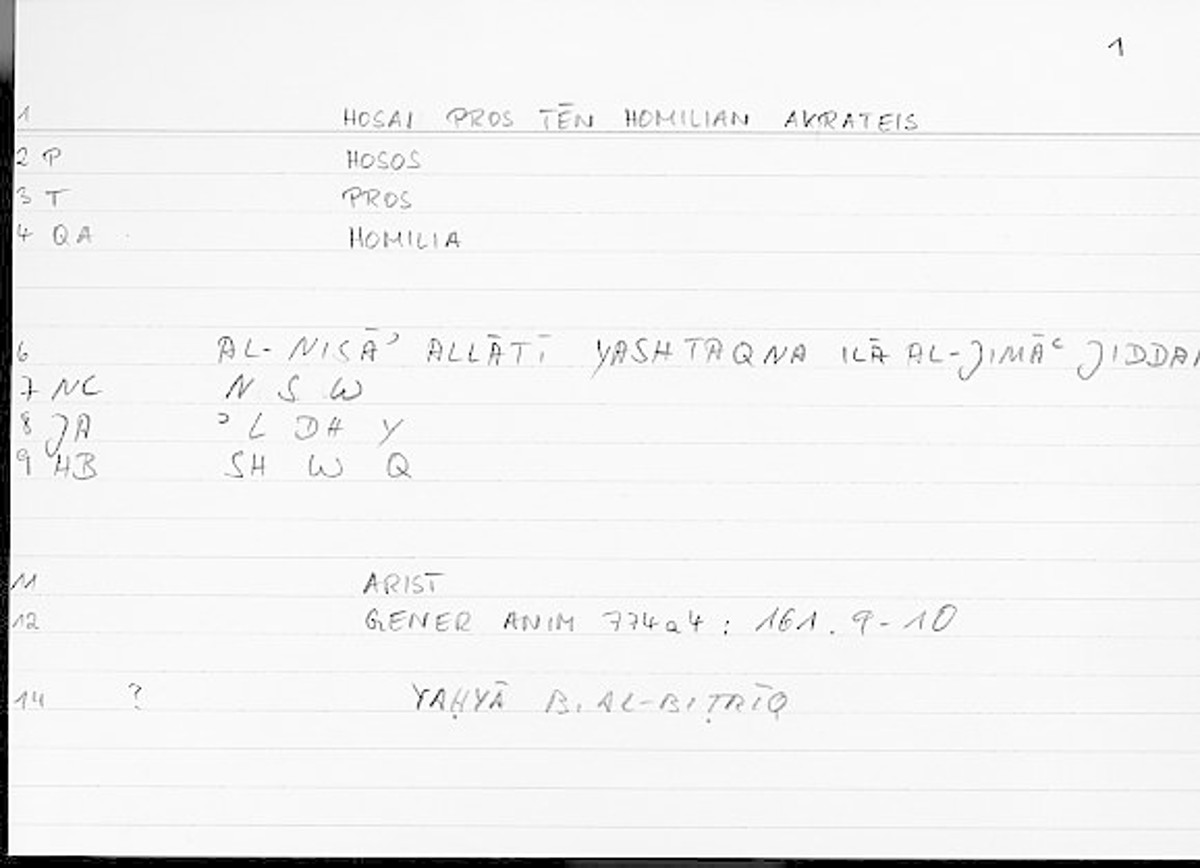 1
1 HOSAI PROS TĒN HOMILIAN AKRATEIS
2 P HOSOS
3 T PROS
4 QA HOMILIA
6 AL-NISĀʾ ALLĀTĪ YASHTAQNA ILĀ AL-JIMĀʿ JIDDAN
7 NC N S W
8 JA ʾ L DH Y
9 HB SH W Q
11 ARIST
12 GENER ANIM 774a4 : 161. 9-10
14 ? YAḤYĀ B. AL-BIṬRĪQ